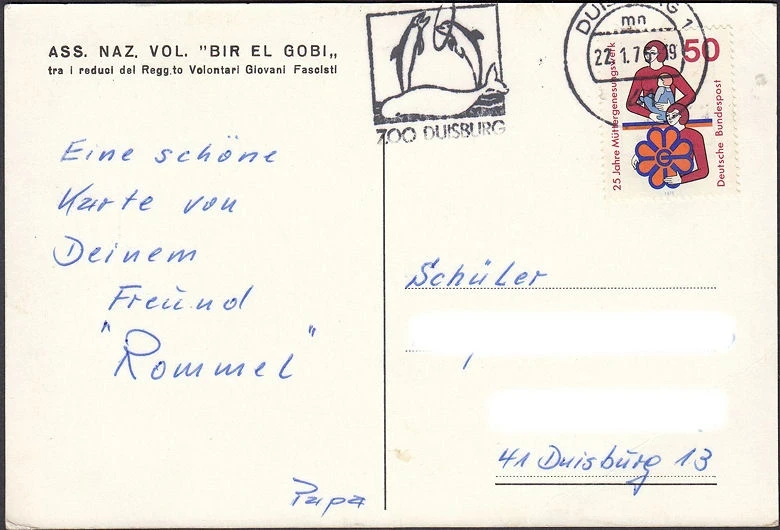 ASS. NAZ. VOL. "BIR EL GOBI„
tra i reduci del Regg.to Volontari Giovani Fascisti
ZOO DUISBURG
DUISBURG 1
mn
22.1.76-19
50
25 Jahre Müttergenesungswerk
Deutsche Bundespost
Eine schöne
Karte von
Deinem
Freund
"Rommel"
Papa
Schüler
41 Duisburg 13